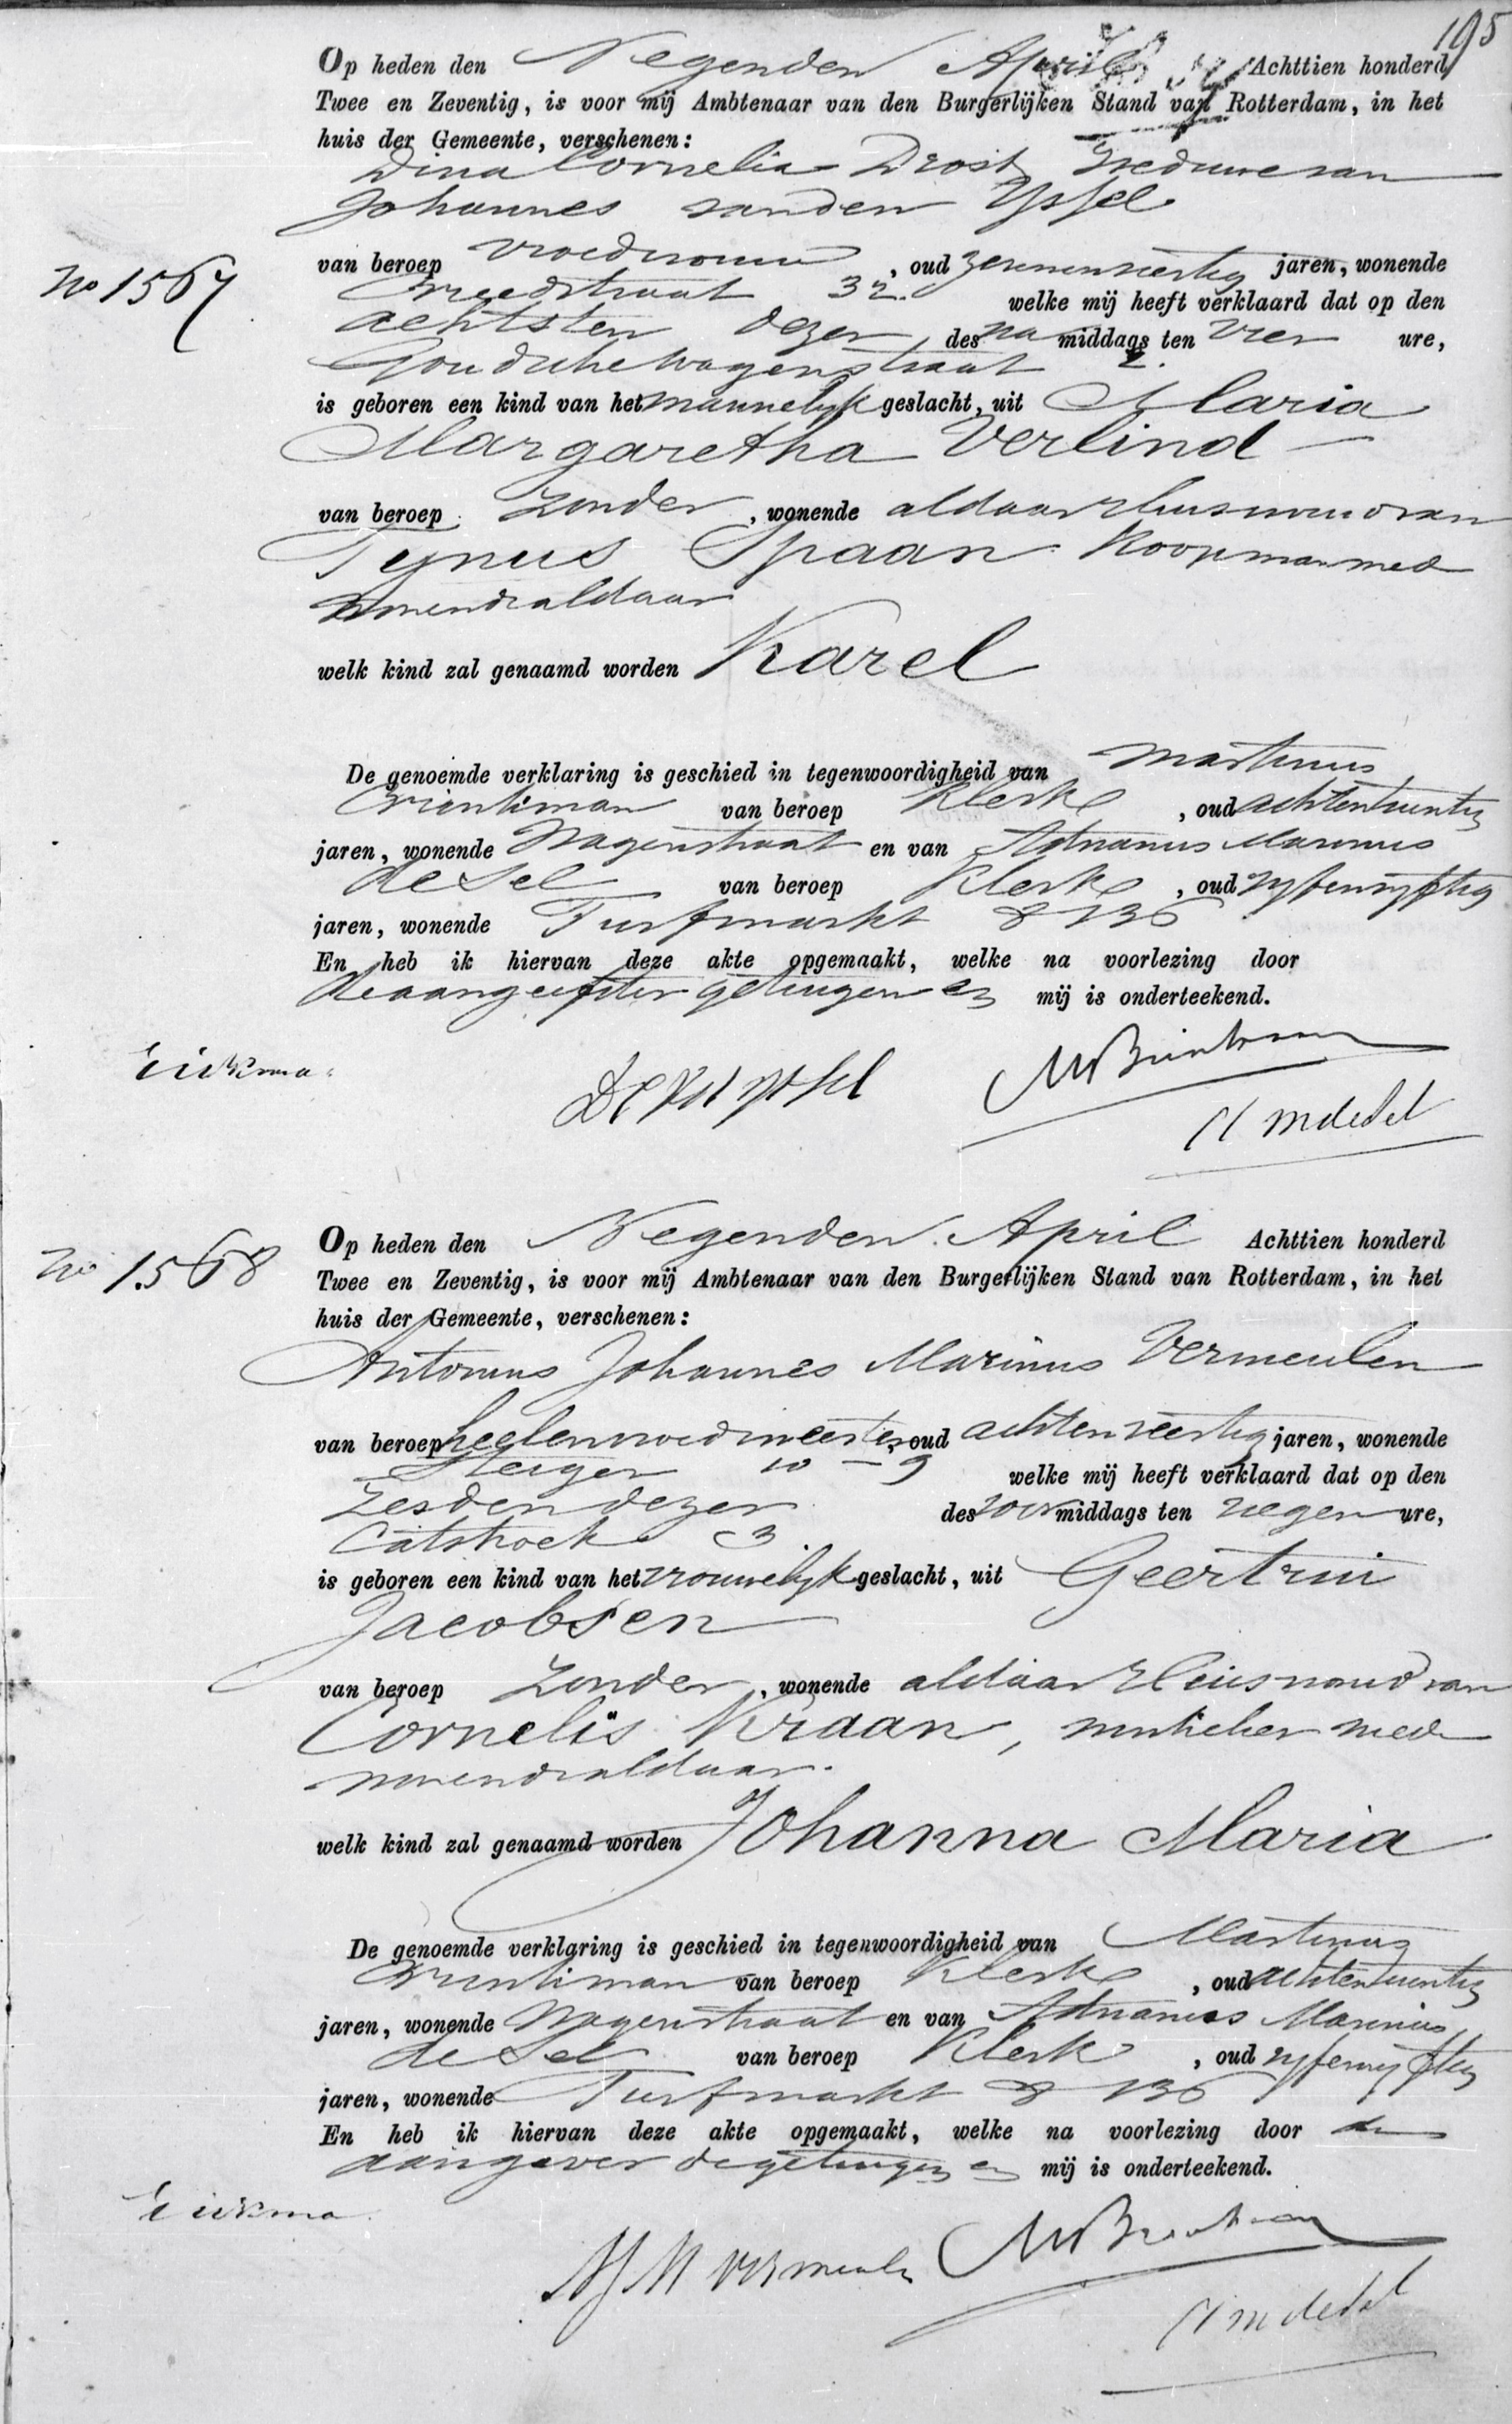 195
Op heden den Negenden April Achttien honderd
Twee en Zeventig, is voor mij Ambtenaar van den Burgerlijken Stand van Rotterdam, in het
huis der Gemeente, verschenen:
Dina Cornelia Drost Weduwe van
Johannes van den Yssel
No 1567
van beroep vroedvrouw, oud zevenenveertig jaren, wonende
Breedstraat 32. welke mij heeft verklaard dat op den
achtsten dezer des na middags ten vier ure,
Goudsche Wagenstraat 2.
is geboren een kind van het mannelyk geslacht, uit Maria
Margaretha Verlind
van beroep zonder, wonende aldaar Huisvrouw van
Tynus Spaan Koopman mede
wonende aldaar
welk kind zal genaamd worden Karel
De genoemde verklaring is geschied in tegenwoordigheid van Martinus
Brinkman van beroep Klerk, oud achtentwintig
jaren, wonende Wagenstraat en van Adrianus Marinus
de Sel van beroep Klerk, oud vyfenvyftig
jaren, wonende Turfmarkt 8 136
En heb ik hiervan deze akte opgemaakt, welke na voorlezing door
de aangeefster getuigen en mij is onderteekend.
MBrinkman
AMdeSel
No 1568
Op heden den Negenden April Achttien honderd
Twee en Zeventig, is voor mij Ambtenaar van den Burgerlijken Stand van Rotterdam, in het
huis der Gemeente, verschenen:
Antonius Johannes Marinus Vermeulen
van beroep heelenvroedmeester, oud achtenveertig jaren, wonende
Steiger 10-9 welke mij heeft verklaard dat op den
zesden dezer des voor middags ten negen ure,
Catshoek 3
is geboren een kind van het vrouwelyk geslacht, uit Geertrui
Jacobsen
van beroep zonder, wonende aldaar Huisvrouw van
Cornelis Kraan, winkelier mede
wonende aldaar.
welk kind zal genaamd worden Johanna Maria
De genoemde verklaring is geschied in tegenwoordigheid van Martinus
Brinkman van beroep Klerk, oud achtentwintig
jaren, wonende Wagenstraat en van Adrianus Marinus
de Sel van beroep Klerk, oud vyfenvyftig
jaren, wonende Turfmarkt 8 136
En heb ik hiervan deze akte opgemaakt, welke na voorlezing door den
aangever de getuigen en mij is onderteekend.
AJM Vermeulen MBrinkman
AMdeSel